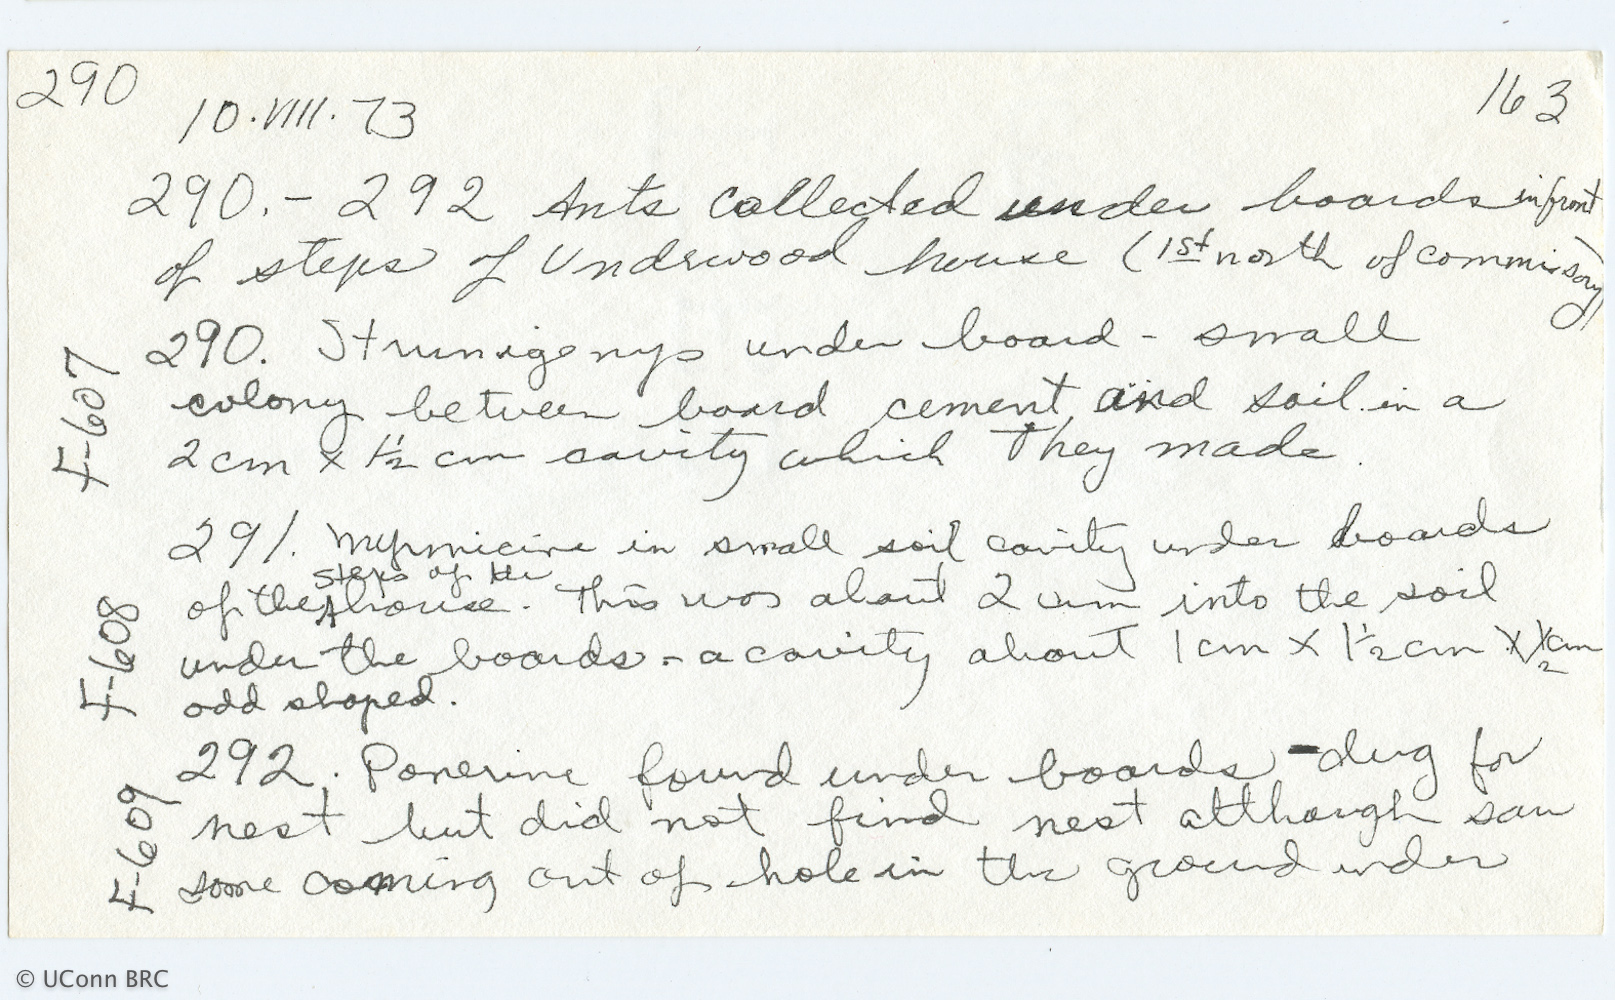 290
163
10.VIII.73
290.-292 Ants collected under boards in front
of steps of Underwood house (1st north of commissory)
F-607
290. Strumigenys under board - small
colony between board cement, and soil in a
2 cm x 1½ cm cavity which they made.
F-608
291. Myrmicine in small soil cavity under boards
of the steps of the house. This was about 2 cm into the soil
under the boards - a cavity about 1 cm x 1½ cm x ½ cm
odd shaped.
F-609
292. Ponerine found under boards - dug for
nest but did not find nest although saw
some coming out of hole in the ground under
© UConn BRC